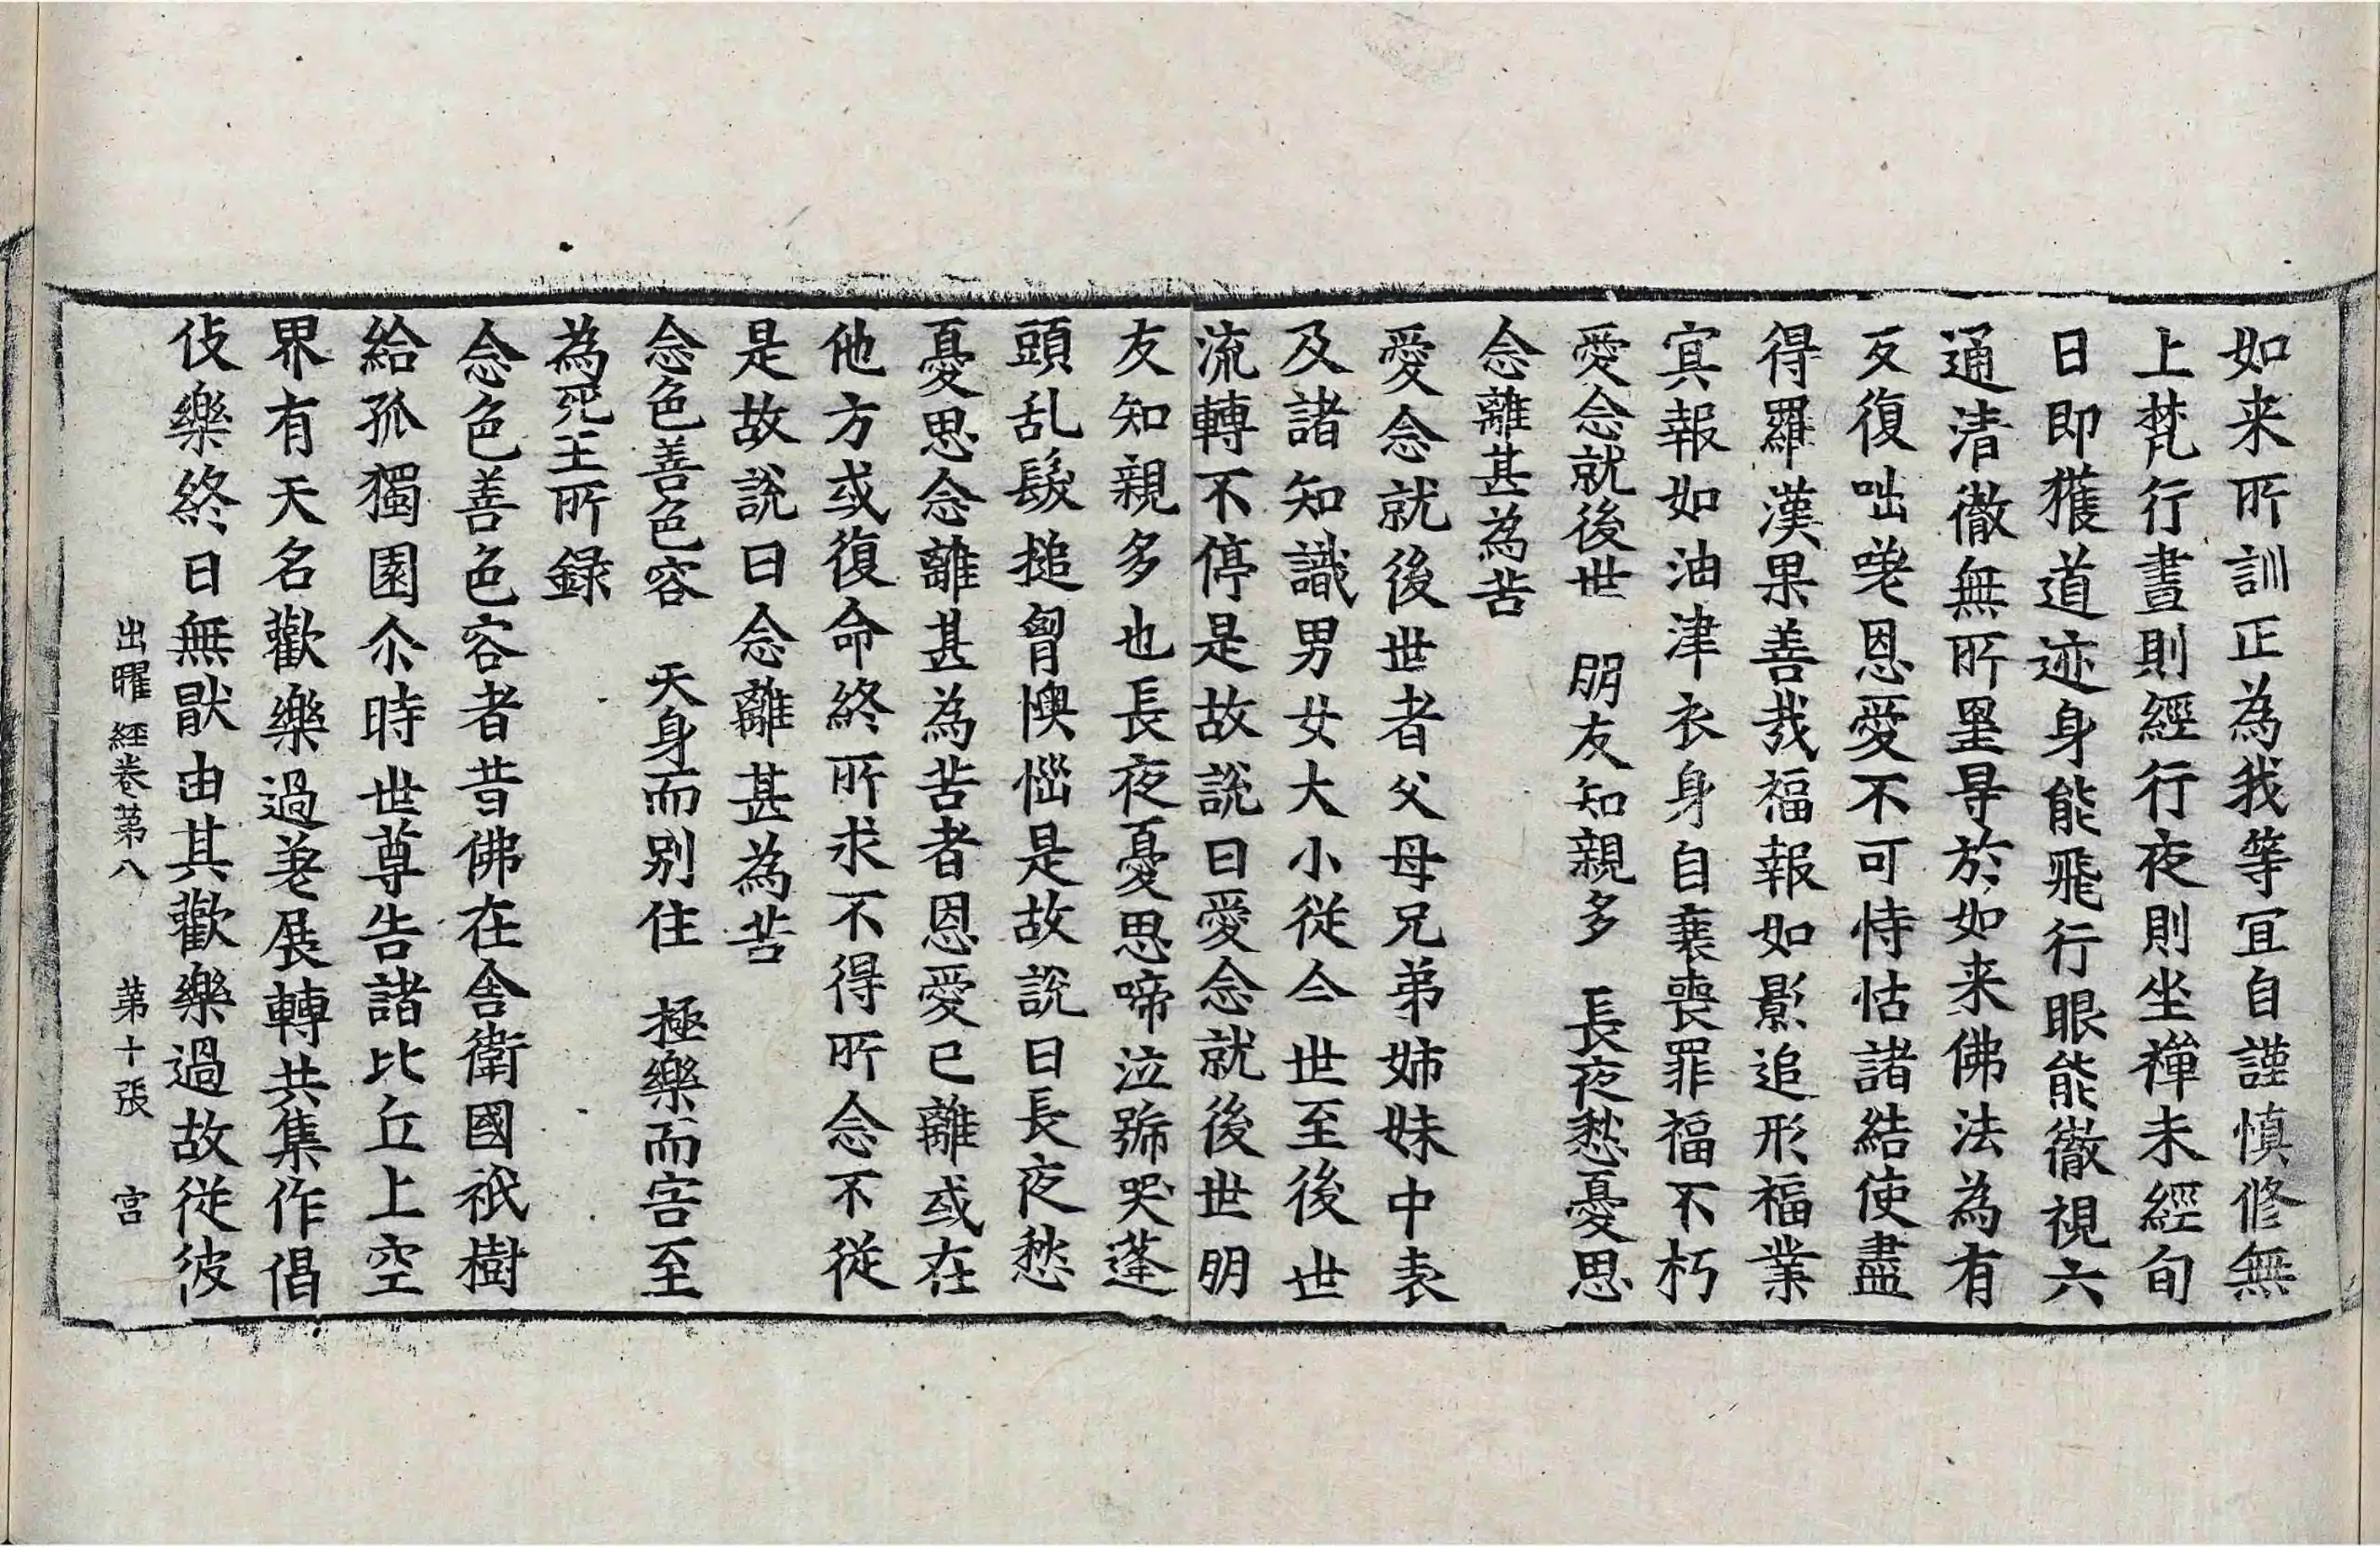 如来所訓正為我等冝自謹慎修無
上梵行晝則經行夜則坐禪未經旬
日即獲道迹身能飛行眼能徹視六
通清徹無所罣㝵於如来佛法為有
反復咄嗟恩愛不可恃怙諸結使盡
得羅漢果善哉福報如影追形福業
冥報如油津衣身自衰喪罪福不朽
愛念就後世　朋友知親多　長夜愁憂思
念離甚為苦
愛念就後世者父母兄弟姉妹中表
及諸知識男女大小従今世至後世
流轉不停是故説曰愛念就後世朋
友知親多也長夜憂思啼泣號哭蓬
頭乱髮搥胷懊惱是故説曰長夜愁
憂思念離甚為苦者恩愛已離或在
他方或復命終所求不得所念不従
是故説曰念離甚為苦
念色善色容　天身而别住　極樂而害至
為死王所録
念色善色容者昔佛在舎衛國祇樹
給孤獨園尒時世尊告諸比丘上空
界有天名歡樂過差展轉共集作倡
伎樂終日無猒由其歡樂過故従彼
出曜經卷第八　第十張　宫